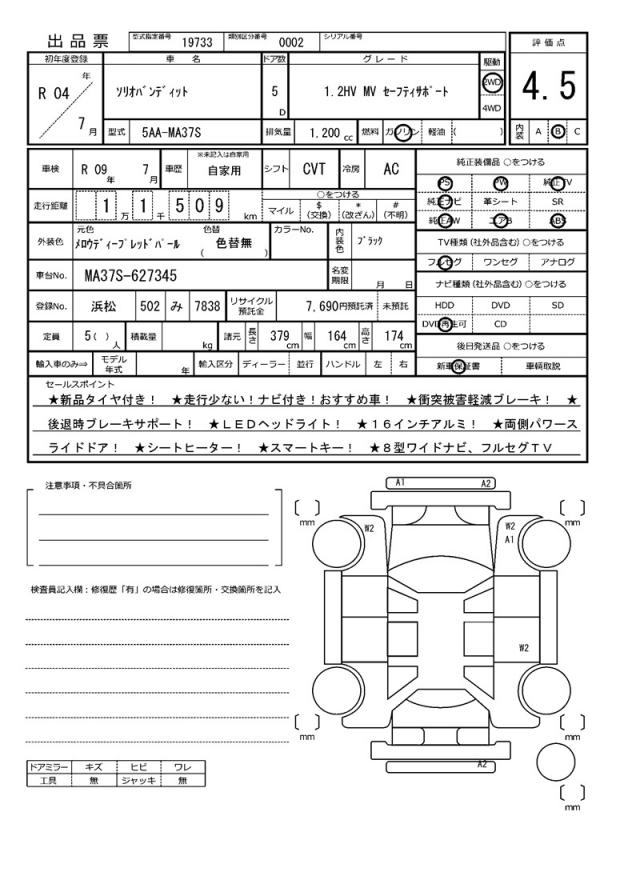 出品票 型式指定番号 19733 類別区分番号 0002 シリアル番号
評価点
4.5
内装 A B C
初年度登録 車名 ドア数 グレード 駆動
R 04 年 7 月
ソリオバンディット 5 D 1.2HV MV セーフティサポート 2WD 4WD
型式 5AA-MA37S 排気量 1.200 cc 燃料 ガソリン 軽油 ( )
車検 R 09 年 7 月 車歴 ※未記入は自家用 自家用 シフト CVT 冷房 AC
走行距離 1 万 1 千 5 0 9 km
○をつける
マイル $ (交換) * (改ざん) # (不明)
外装色 元色 メロウディープレッドパール 色替 ( 色替無 ) カラーNo. 内装色 ブラック
車台No. MA37S-627345 名変期限 月 日
登録No. 浜松 502 み 7838 リサイクル預託金 7,690円預託済 未預託
定員 5( ) 人 積載量 kg 諸元 長さ 379 cm 幅 164 cm 高さ 174 cm
輸入車のみ⇒ モデル年式 年 輸入区分 ディーラー 並行 ハンドル 左 右
純正装備品 ○をつける
PS PW 純正TV
純正ナビ 革シート SR
純正AW エアB ABS
TV種類 (社外品含む) ○をつける
フルセグ ワンセグ アナログ
ナビ種類 (社外品含む) ○をつける
HDD DVD SD
DVD再生可 CD
後日発送品 ○をつける
新車保証書 車輌取説
セールスポイント
★新品タイヤ付き! ★走行少ない!ナビ付き!おすすめ車! ★衝突被害軽減ブレーキ! ★
後退時ブレーキサポート! ★LEDヘッドライト! ★16インチアルミ! ★両側パワース
ライドドア! ★シートヒーター! ★スマートキー! ★8型ワイドナビ、フルセグTV
注意事項・不具合箇所
検査員記入欄:修復歴「有」の場合は修復箇所・交換箇所を記入
ドアミラー キズ ヒビ ワレ
工具 無 ジャッキ 無
A1 A2
mm mm
W2 W2
A1
W2
mm mm
A2
mm